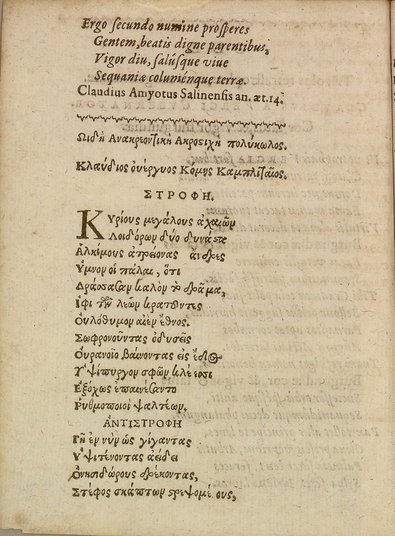 Ergo secundo numine prosperes
Gentem, beatis digne parentibus,
Vigor diu, salúsque viue
Sequaniæ columiénque terræ.
Claudius Amyotus Salinensis an. æt. 14.
Ωιδὴ Ανακρεοντικὴ Ακροςιχὴ πολύκωλος.
Κλαύδιος ουέργυος Κόμης Καμπλιταῖος.
ΣΤΡΟΦΗ.
Κυρίους μεγάλους ἀχαιῶν
Λοιδόρων δύο
Αλκίμους ἀτρέονας ἄνδρες
Υμνον οἱ πάλαι, ὅτι
καλὸν τὸ δρᾶμα,
Ιφι τῶν λεῶν κρατοῦντες
Ουλόθυμον αἰὲν ἔθνος.
Σωφρονοῦντας ὀδυσεῖς
Ουρανοῖο βαίνοντας εἰς
Υψίπυργον σφῶν κλέει
Εξόχως
Ρυθμοποιοὶ ψαλτέων.
ΑΝΤΙΣΤΡΟΦΗ
Γῆ ἐν νῦν ὡς γίγαντας
Υψιτένοντας
Ονησιδώρους δρέκοντας,
Στέφος σκάπτων